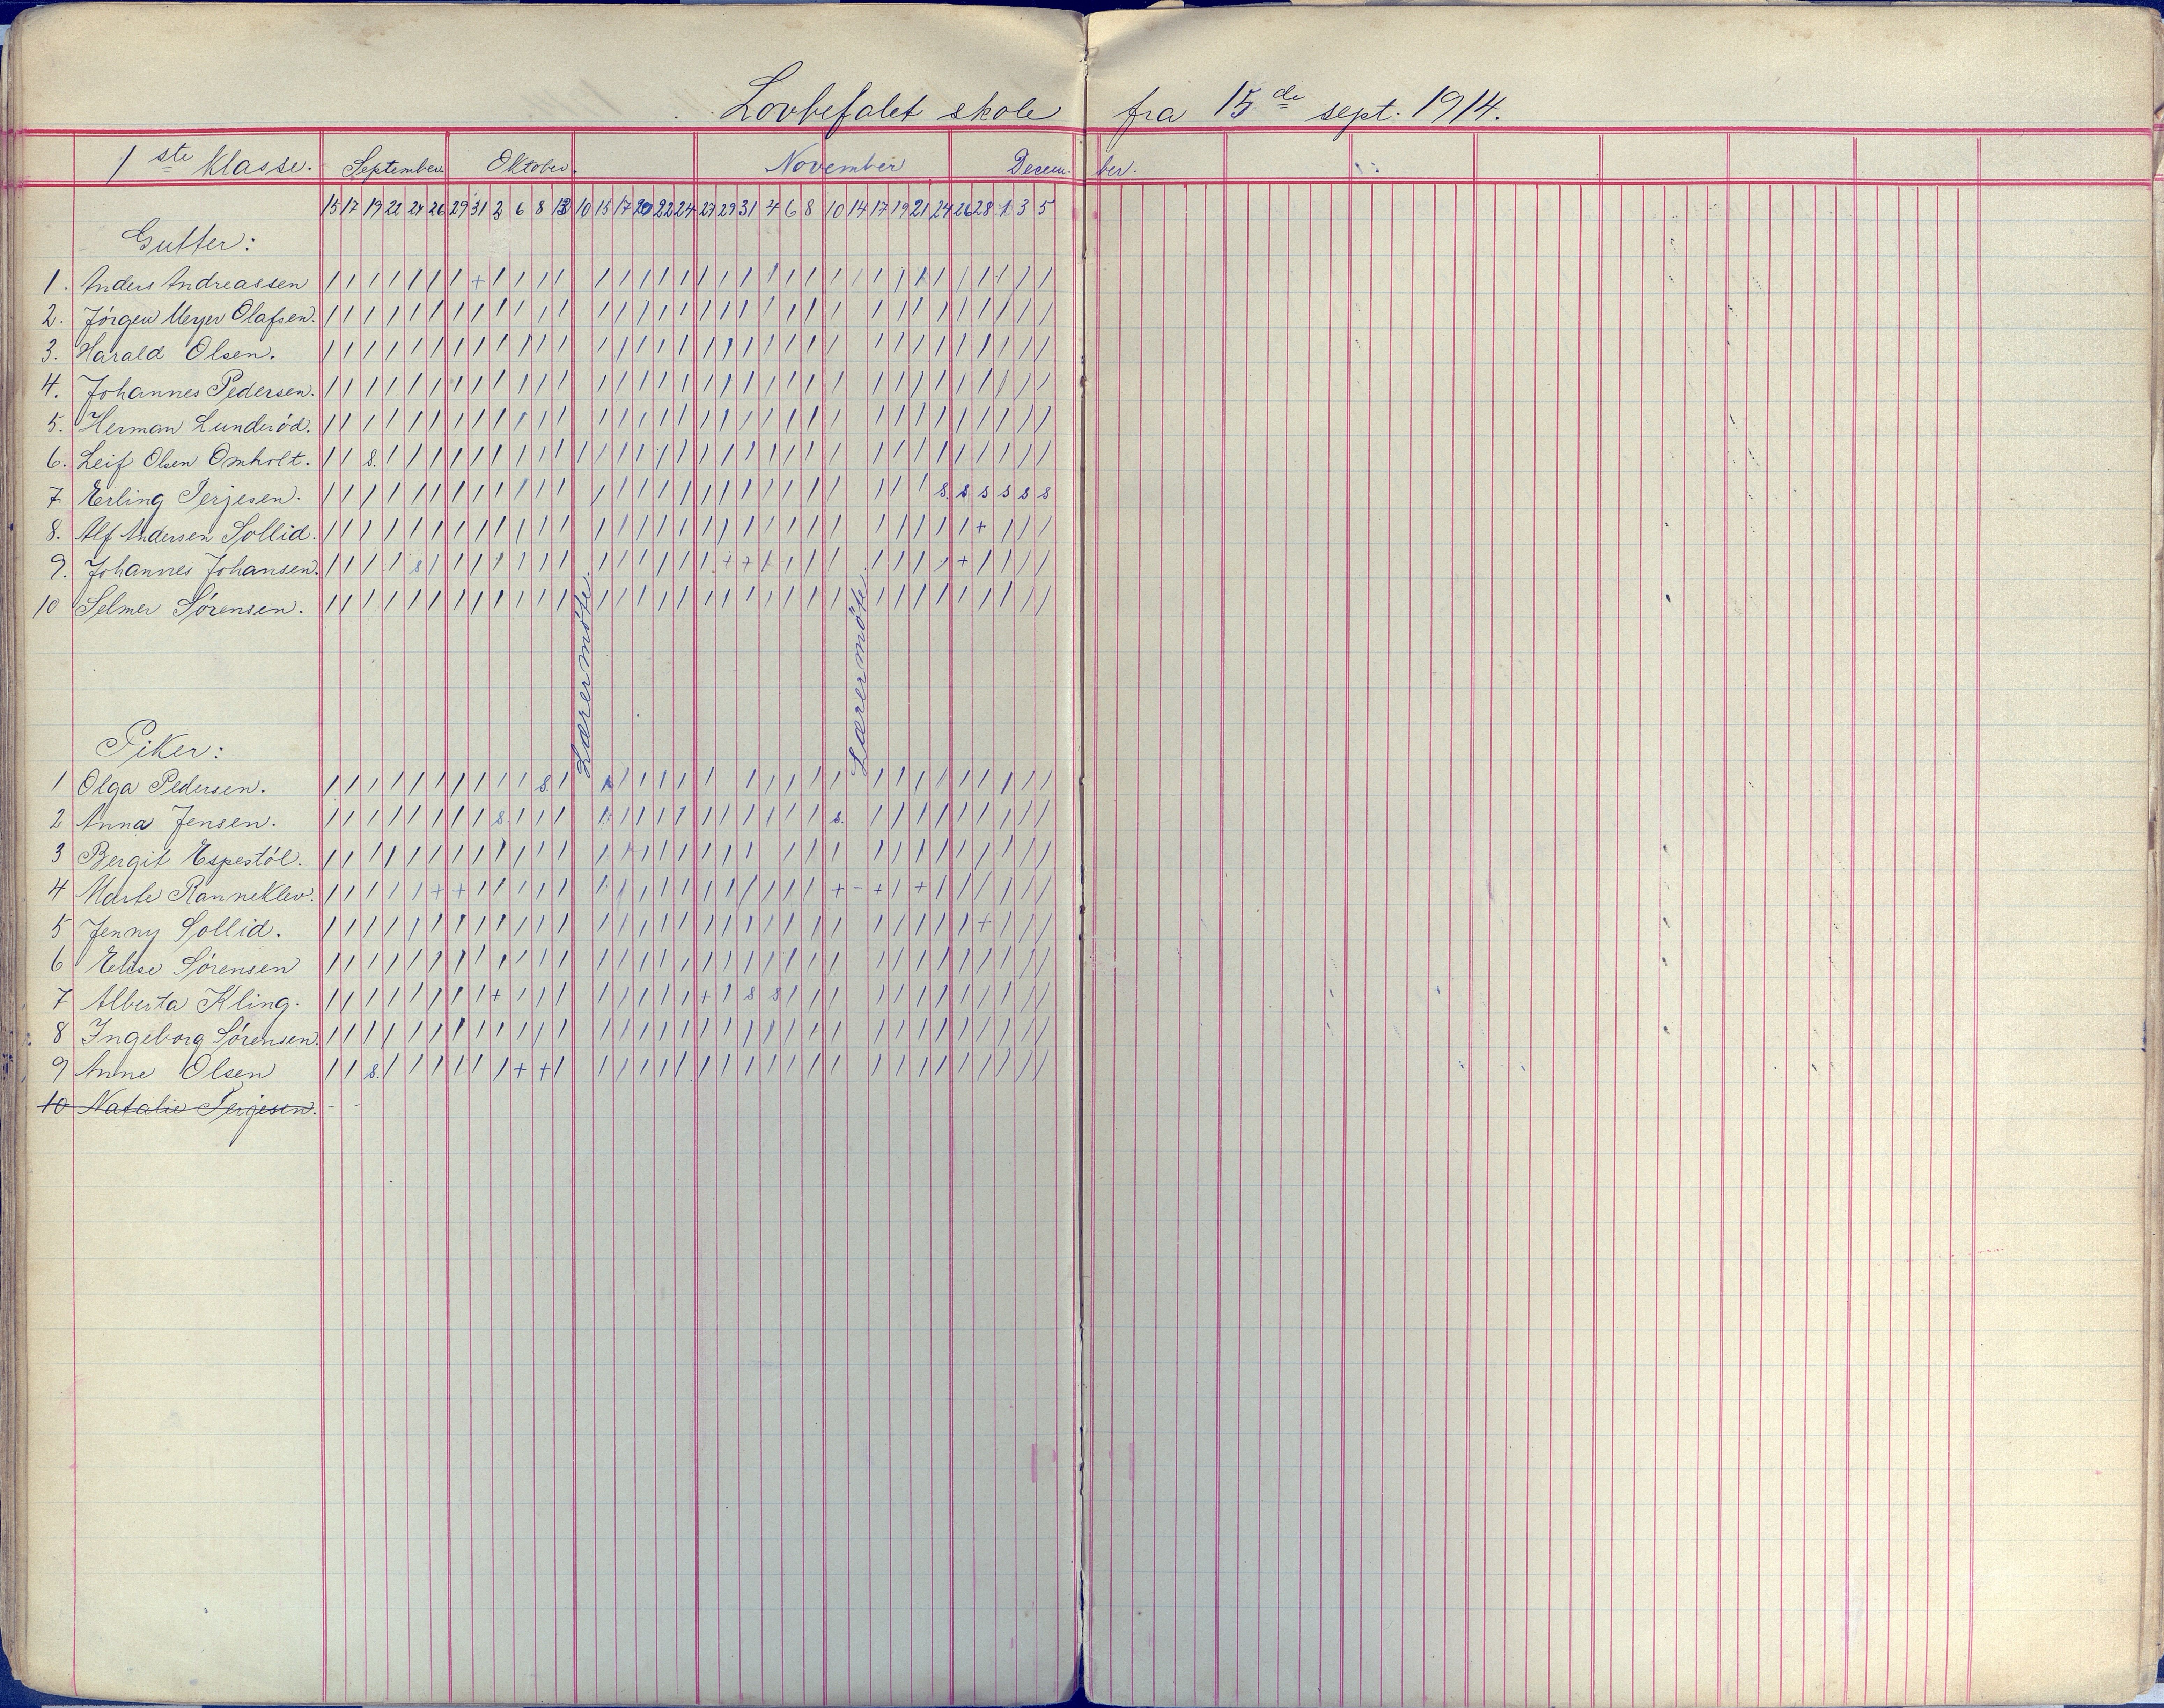 Lovbefalet skole fra 15de sept. 1914.
1ste klasse. September. Oktober. November December.
15 17 19 22 24 26 29 31 2 6 8 13 10 15 17 20 22 24 27 29 31 4 6 8 10 14 17 19 21 24 26 28 1 3 5
Gutter:
1. Anders Andreassen / / / / / / / + / / / / / / / / / / / / / / / / / / / / / / / / / /
2. Jörgen Meyer Olafsen. / / / / / / / / / / / / / / / / / / / / / / / / / / / / / / / / /
3. Harald Olsen. / / / / / / / / / / / / / / / / / / / / / / / / / / / / / / / / /
4. Johannes Pedersen. / / / / / / / / / / / / / / / / / / / / / / / / / / / / / / / / /
5. Herman Lunderöd. / / / / / / / / / / / / / / / / / / / / / / / / / / / / / / / / /
6. Leif Olsen Omholt. / / s. / / / / / / / / / / / / / / / / / / / / / / / / / / / / / / / /
7 Erling Terjesen. / / / / / / / / / / / / / / / / / / / / / / / / / / / / s. s s s s s
8. Alf Andersen Sollid. / / / / / / / / / / / / / / / / / / / / / / / / / / / / / / + / / /
9. Johannes Johansen. / / / / s / / / / / / / / / / / / / / + + / / / / / / / / / + / / / /
10 Selmer Sörensen. / / / / / / / / / / / / / / / / / / / / / / / / / / / / / / / / /
Lærermöte.
Lærermöte.
Piker:
1 Olga Pedersen. / / / / / / / / / / s. / / / / / / / / / / / / / / / / / / / / / /
2 Anna Jensen. / / / / / / / / s / / / / / / / / / / / / / / / s. / / / / / / / / /
3 Bergit Espestöl. / / / / / / / / / / / / / / / / / / / / / / / / / / / / / / / /
4 Marte Ranneklev. / / / / / + + / / / / / / / / / / / / / / / / / + - + / + / / / / / /
5 Jenny Sollid. / / / / / / / / / / / / / / / / / / / / / / / / / / / / / / + / / /
6 Elise Sörensen / / / / / / / / / / / / / / / / / / / / / / / / / / / / / / / / /
7 Alberta Kling. / / / / / / / / + / / / / / / / / / + / s s / / / / / / / / / / / /
8 Ingeborg Sörensen. / / / / / / / / / / / / / / / / / / / / / / / / / / / / / / / / /
9 Anne Olsen / / s. / / / / / / + + / / / / / / / / / / / / / / / / / / / / / / /
10 Natalie Terjesen. - -